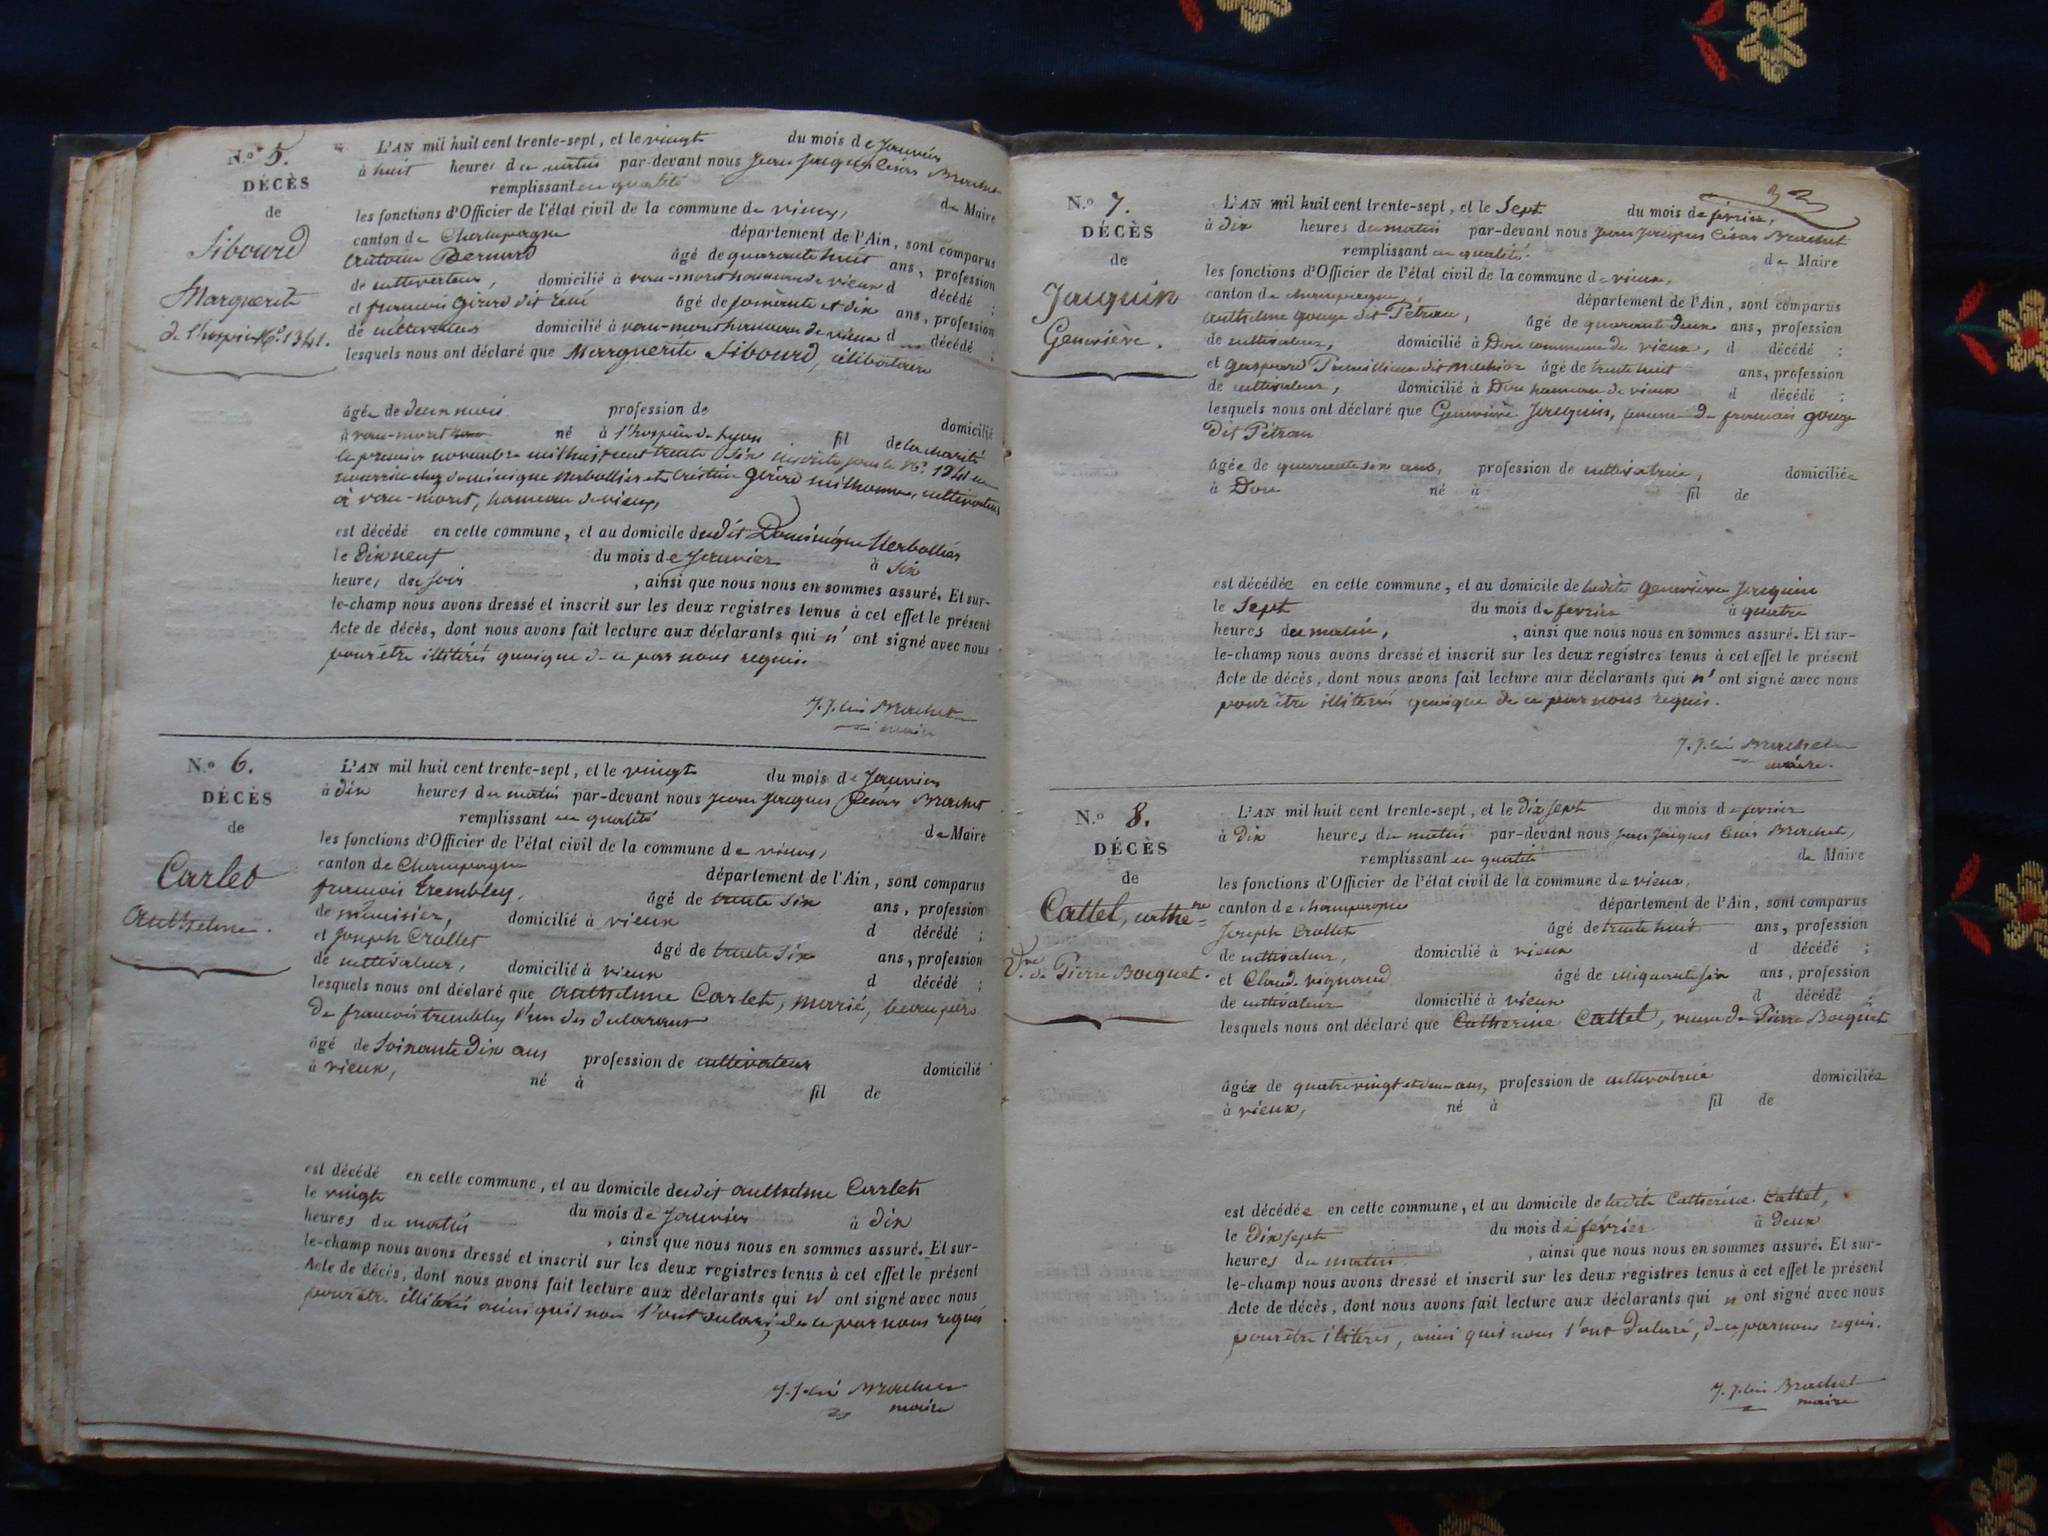 N.º 5.
DÉCÈS
de
Sibourd
Marguerite
de l'hospice N.º 1341.
L'AN mil huit cent trente-sept, et le vingt du mois de Janvier
à huit heures du matin par-devant nous Jean Jacques César Brachet
remplissant en qualité de Maire
les fonctions d'Officier de l'état civil de la commune de vieux,
canton de Champagne département de l'Ain, sont comparus
Bernard âgé de quarante huit ans, profession
de cultivateur, domicilié à vau-mont hameau de vieux d décédé ;
et françois Girerd dit âgé de soixante et dix ans, profession
de cultivateur domicilié à vau-mont hameau de vieux d décédé ;
lesquels nous ont déclaré que Marguerite Sibourd, célibataire
âgée de deux mois profession de domicilié
à vau-mont né à l'hospice de Lyon fil de la charité
le premier novembre mil huit cent trente six inscrite sous le N.º 1341 en
nourrice chez dominique Merbollier et Girerd cultivateurs
à vau-mont, hameau de vieux,
est décédé en cette commune, et au domicile du dit Dominique Merbollier
le dix neuf du mois de Janvier à Six
heures du soir , ainsi que nous nous en sommes assuré. Et sur-
le-champ nous avons dressé et inscrit sur les deux registres tenus à cet effet le présent
Acte de décès, dont nous avons fait lecture aux déclarants qui n' ont signé avec nous
pour être illitérés quoique de ce par nous requis.
J. J. César Brachet
maire
N.º 6.
DÉCÈS
de
Carlet
Anthelme.
L'AN mil huit cent trente-sept, et le vingt du mois de Janvier
à dix heures du matin par-devant nous Jean Jacques César Brachet
remplissant en qualité de Maire
les fonctions d'Officier de l'état civil de la commune de vieux,
canton de Champagne département de l'Ain, sont comparus
françois trembley, âgé de trente six ans, profession
de menuisier, domicilié à vieux d décédé ;
et Joseph Crollet âgé de trente six ans, profession
de cultivateur, domicilié à vieux d décédé ;
lesquels nous ont déclaré que Anthelme Carlet, marié, beau père
de françois trembley l'un des declarans
âgé de Soixante Dix ans profession de cultivateur domicilié
à vieux, né à fil de
est décédé en cette commune, et au domicile du dit Anthelme Carlet
le vingt du mois de Janvier à dix
heures du matin , ainsi que nous nous en sommes assuré. Et sur-
le-champ nous avons dressé et inscrit sur les deux registres tenus à cet effet le présent
Acte de décès, dont nous avons fait lecture aux déclarants qui n' ont signé avec nous
pour être illitérés ainsi qu'il nous l'ont declaré, de ce par nous requis
J. J. César Brachet
maire
32
N.º 7.
DÉCÈS
de
Jaquin
Geneviève.
L'AN mil huit cent trente-sept, et le Sept du mois de février,
à dix heures du matin par-devant nous Jean Jacques César Brachet
remplissant en qualité de Maire
les fonctions d'Officier de l'état civil de la commune de vieux,
canton de champagne, département de l'Ain, sont comparus
anthelme gouge dit Pétran, âgé de quarante deux ans, profession
de cultivateur, domicilié à Don commune de vieux, d décédé ;
et gaspard dit Melchior âgé de trente huit ans, profession
de cultivateur, domicilié à Don hameau de vieux d décédé ;
lesquels nous ont déclaré que Geneviève Jacquin, femme de francois gouge
Dit Pétran
âgée de quarante six ans, profession de cultivatrice, domiciliée
à Don né à fil de
est décédée en cette commune, et au domicile de ladite Geneviève Jacquin
le Sept du mois de fevrier à quatre
heures du matin, , ainsi que nous nous en sommes assuré. Et sur-
le-champ nous avons dressé et inscrit sur les deux registres tenus à cet effet le présent
Acte de décès, dont nous avons fait lecture aux déclarants qui n' ont signé avec nous
pour être illiterés quoique de ce par nous requis.
J. J. César Brachet
maire.
N.º 8.
DÉCÈS
de
Cattel, cathe=ne
V.ve de Pierre Bocquet.
L'AN mil huit cent trente-sept, et le dix sept du mois de fevrier
à Dix heures du matin par-devant nous Jean Jacques César Brachet,
remplissant en qualité de Maire
les fonctions d'Officier de l'état civil de la commune de vieux,
canton de champagne département de l'Ain, sont comparus
Joseph Crollet âgé de trente huit ans, profession
de cultivateur, domicilié à vieux d décédé ;
et Claude vignand âgé de cinquante six ans, profession
de cultivateur domicilié à vieux d décédé ;
lesquels nous ont déclaré que Catherine Cattel, veuve de Pierre Bocquet
âgée de quatre vingt et deux ans, profession de cultivatrice domiciliée
à vieux, né à fil de
est décédée en cette commune, et au domicile de ladite Catherine Cattel,
le Dix sept du mois de fevrier à Deux
heures du matin , ainsi que nous nous en sommes assuré. Et sur-
le-champ nous avons dressé et inscrit sur les deux registres tenus à cet effet le présent
Acte de décès, dont nous avons fait lecture aux déclarants qui n ont signé avec nous
pour être iliterés, ainsi quis nous l'ont Declaré, de ce par nous requis.
J. J. César Brachet
maire